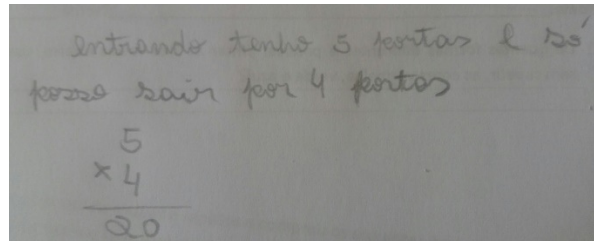 entrando tenho 5 portas e só
posso sair por 4 portas
5
× 4
20